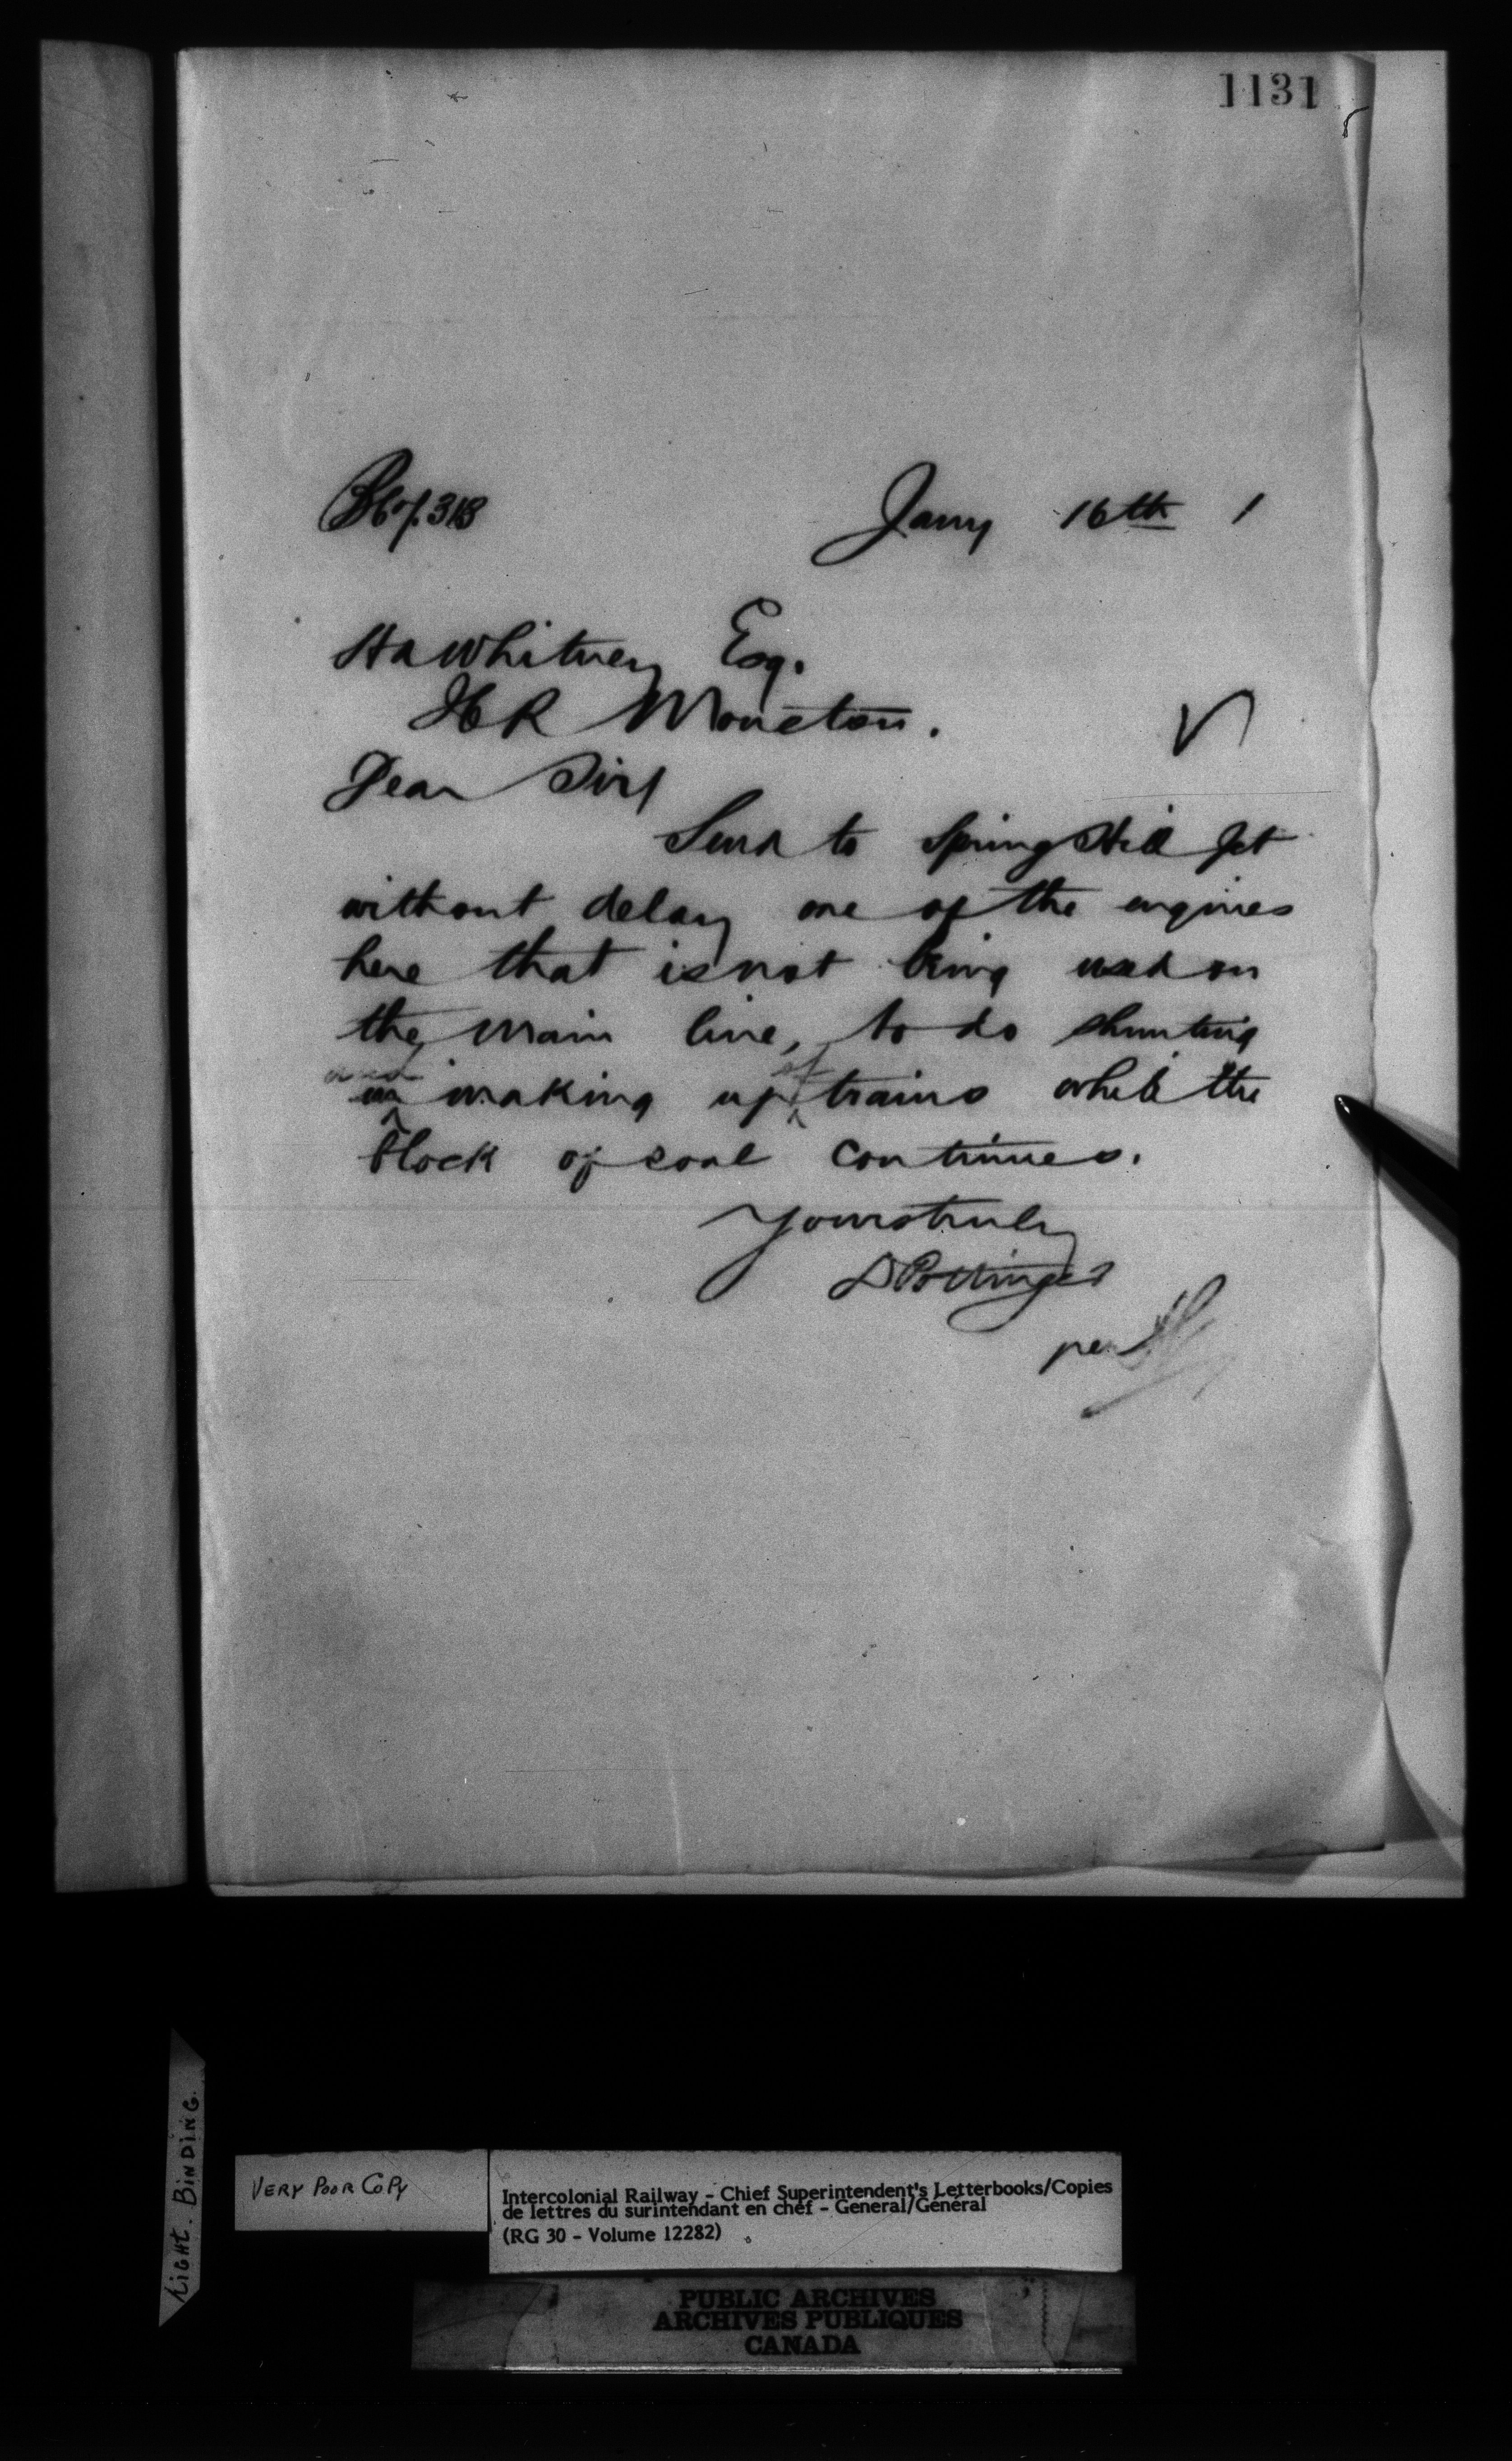 1131
Jany 16th 1
HA Whitney Esq.
ICR Moncton.
Dear Sir/
Send to Spring Hill Jct
without delay one of the engines
here that is not being used on
the main line, to do shunting
and
in making up of trains while the
block of coal continues.
Yours truly
D Pottinger
per
LIGHT. BINDING.
VERY POOR COPY
Intercolonial Railway - Chief Superintendent's Letterbooks/Copies
de lettres du surintendant en chef - General/Général
(RG 30 - Volume 12282)
PUBLIC ARCHIVES
ARCHIVES PUBLIQUES
CANADA